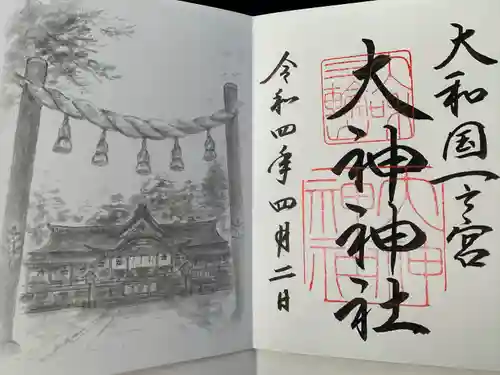 大和国一之宮
大神神社
大神
神社
令和四年四月二日